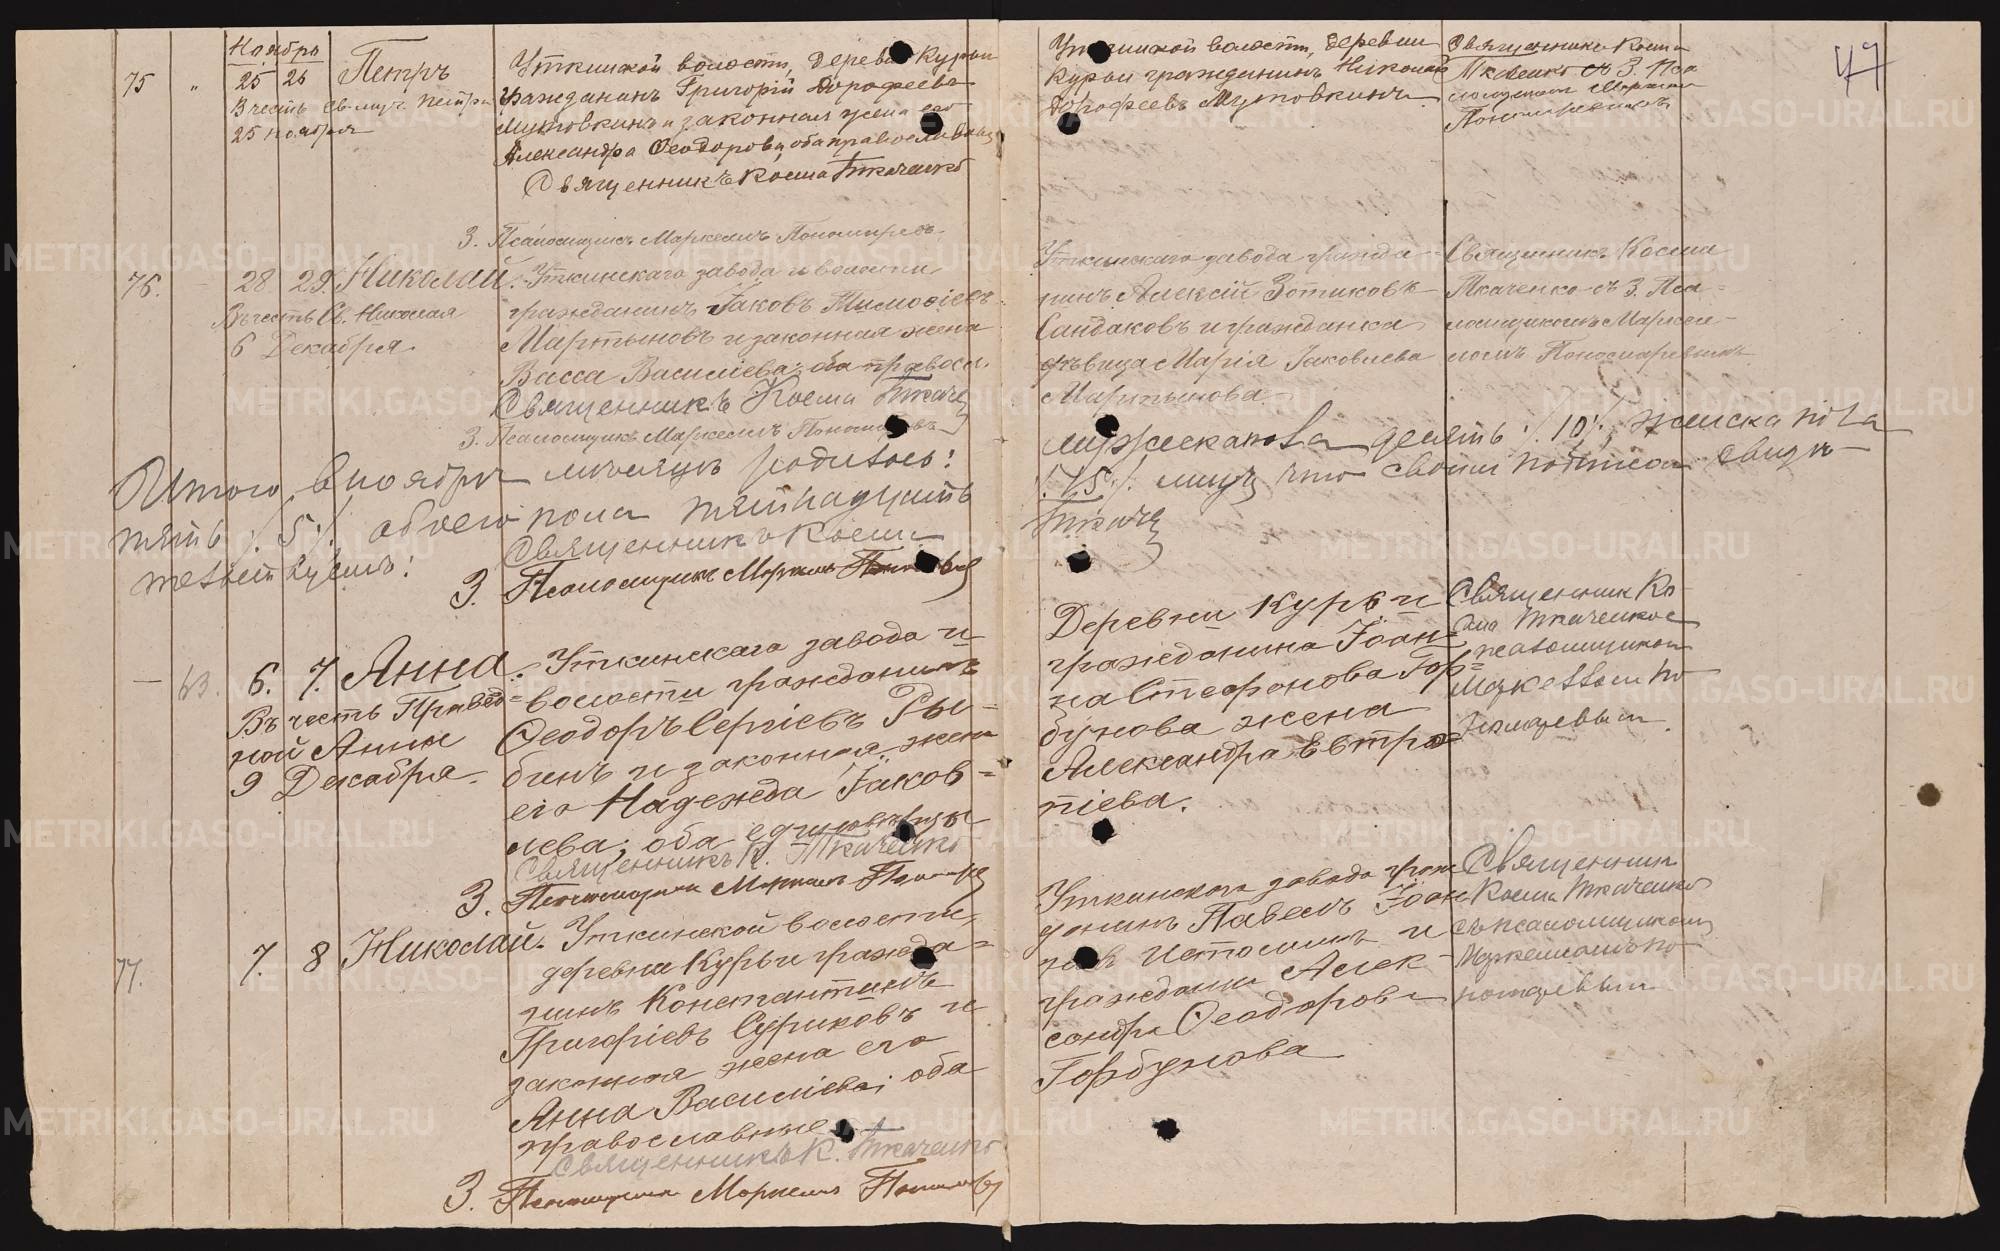 Ноябрь
75 " 25 26 Петръ
В честь св. муч. Петра
25 ноября
Уткинской волости, деревни Курьи
гражданинъ Григорій Дорофеевъ
Мутовкинъ и законная жена его
Александра Ѳеодорова, оба православные
Священникъ Косма Ткаченко
З. Псаломщикъ Маркеллъ Пономаревъ
Уткинской волости, деревни
Курьи гражданинъ Николай
Дорофеевъ Мутовкинъ.
Священникъ Косма
Ткаченко съ З. Пса
ломщикомъ Маркел
Пономаревымъ
47
76. 28 29. Николай.
Въ честь Св. Николая
6 Декабря.
Уткинскаго завода и волости
гражданинъ Іаковъ Тимоѳіевъ
Мартыновъ и законная жена
Васса Василіева; оба правосл.
Священникъ Косма Ткаче
З. Псаломщикъ Маркеллъ Пономаревъ
Уткинскаго завода гражда-
нинъ Алексій Зотиковъ
Сандаковъ и гражданка
дѣвица Марія Іаковлева
Мартынова.
Священникъ Косма
Ткаченко съ З. Пса=
ломщикомъ Маркел-
ломъ Пономаревымъ
Итого в ноябрѣ месяцѣ родилось: мужеска пола десять ./.10./., женска пола
пять ./.5./. обоего пола пятнадцать ./.15./. лицъ, что своим подписом свидѣ-
тельствуемъ:
Священникъ Косма Ткаче
З. Псаломщикъ Маркеллъ Пономаревъ
— 63. 6. 7. Анна.
Въ честь Правед=
ной Анны
9 Декабря.
Уткинскаго завода и
волости гражданинъ
Ѳеодоръ Сергіевъ Ры-
бинъ и законная жена
его Надежда Іаков=
лева; оба единовѣрцы
Священникъ К. Ткаченко
З. Псаломщикъ Маркеллъ Пономаре
Деревни Курьи
гражданина Іоан=
на Стефанова Гор=
бунова жена
Александра Евтро=
піева.
Священник Ко-
сма Ткаченко с
псаломщиком
Маркеллом По
номаревым.
77. 7. 8 Николай.
Уткинской волости,
деревни Курьи гражда=
нинъ Константинъ
Григоріевъ Суриковъ и
законная жена его
Анна Василіева; оба
православные
Священникъ К. Ткаченко
З. Псаломщикъ Маркеллъ Пономаревъ
Уткинскаго завода граж
данинъ Павелъ Іоан
новъ Истоминъ и
гражданка Алек-
сандра Ѳеодорова
Горбунова
Священник
Косма Ткаченко
съ псаломщикомъ
Маркелломъ По-
номаревым